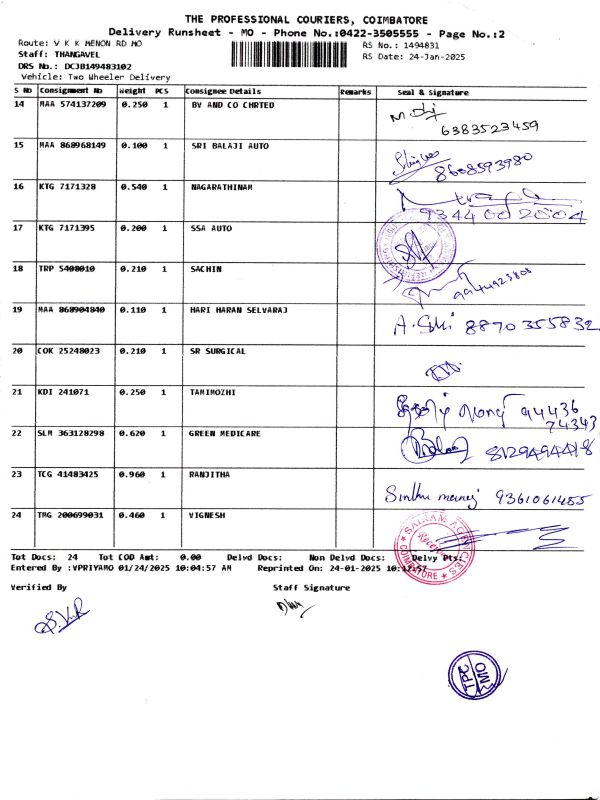 THE PROFESSIONAL COURIERS, COIMBATORE
Delivery Runsheet - MO - Phone No.:0422-3505555 - Page No.:2
Route: V K K MENON RD MO
RS No.: 1494831
Staff: THANGAVEL
RS Date: 24-Jan-2025
DRS No.: DCJB149483102
Vehicle: Two Wheeler Delivery
S NO Consignment No Weight PCS Consignee Details Remarks Seal & Signature
14 MAA 574137209 0.250 1 BV AND CO CHRTED
6383523459
15 MAA 868968149 0.100 1 SRI BALAJI AUTO
8608593980
16 KTG 7171328 0.540 1 NAGARATHINAM
9344002004
17 KTG 7171395 0.200 1 SSA AUTO
18 TRP 5408010 0.210 1 SACHIN
19 MAA 868904840 0.110 1 HARI HARAN SELVARAJ
8870355832
20 COK 25248023 0.210 1 SR SURGICAL
21 KDI 241071 0.250 1 TAMIMOZHI
94436
74343
22 SLM 363128298 0.620 1 GREEN MEDICARE
8129494418
23 TCG 41483425 0.960 1 RANJITHA
9361061455
24 TMG 200699031 0.460 1 VIGNESH
SAIRAM AGENCIES
COIMBATORE
Tot Docs: 24 Tot COD Amt: 0.00 Delvd Docs: Non Delvd Docs: Delvy Pts:
Entered By :VPRIYAMO 01/24/2025 10:04:57 AM Reprinted On: 24-01-2025 10:12:57
Verified By Staff Signature
TPC
MO